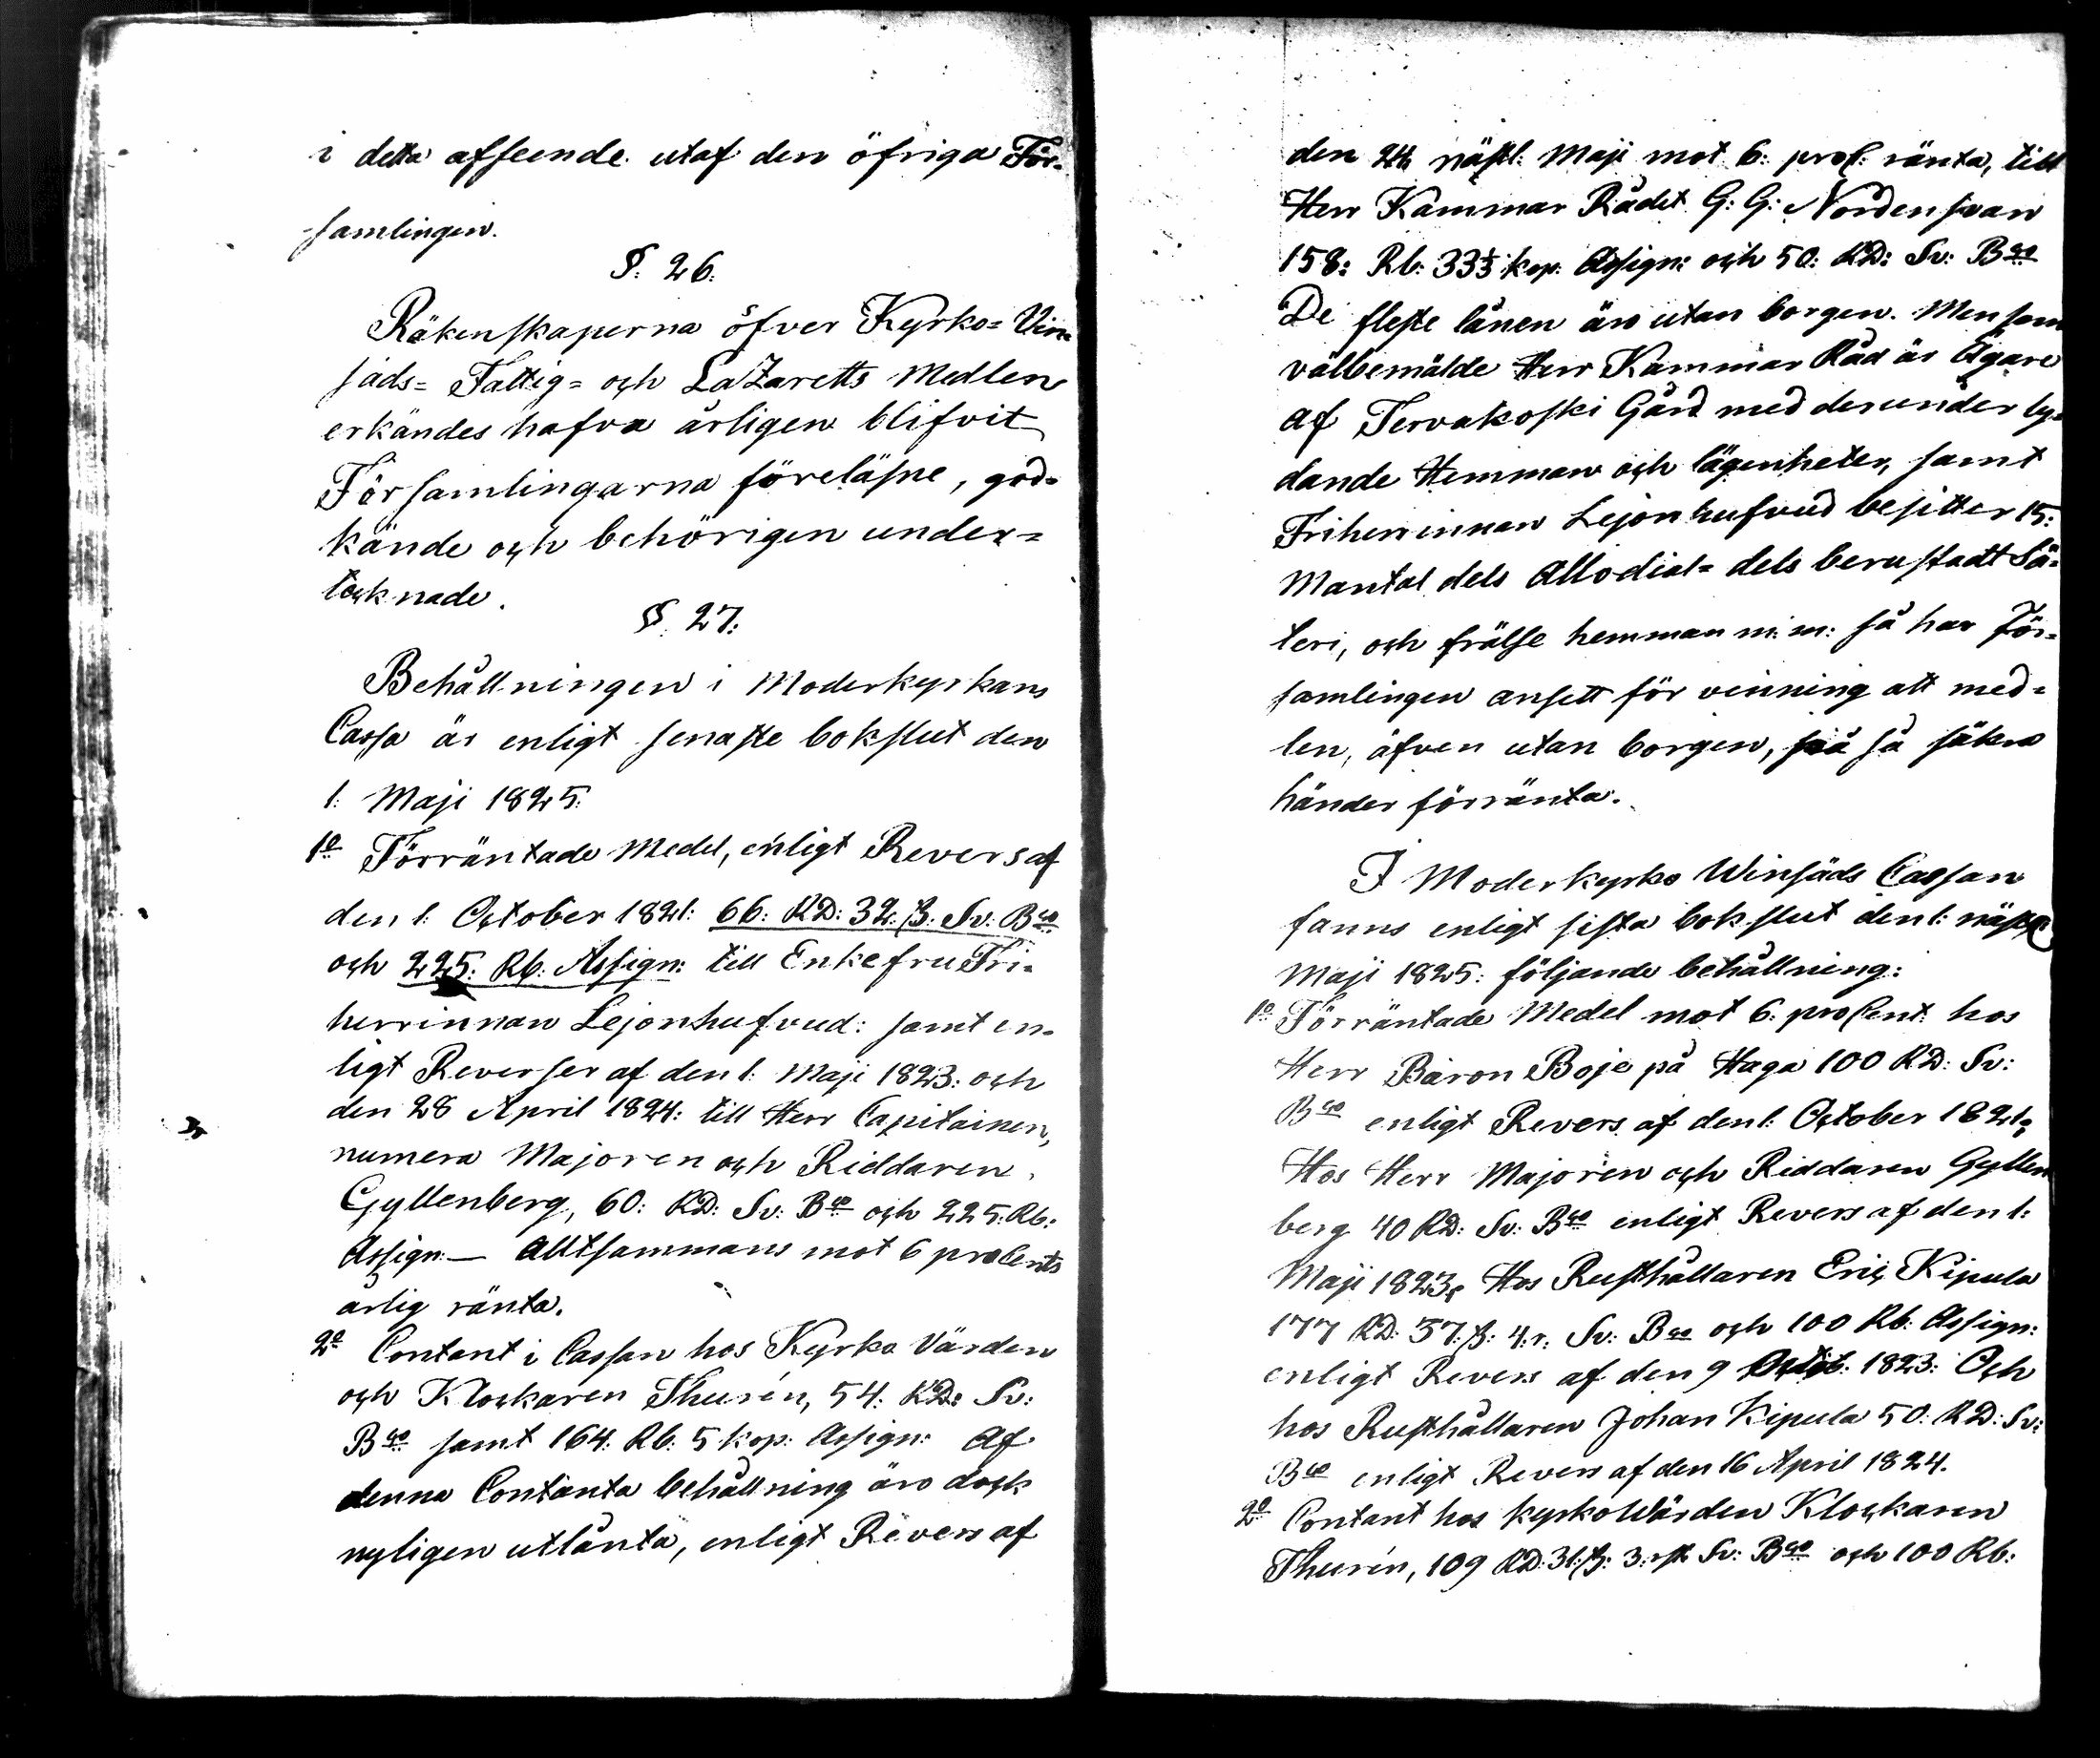 i detta afseende utaf den öfriga För-
samlingen.
§. 26.
Räkenskaperna öfver Kyrko= Vin=
säds= Fattig= och LaZaretts Medlen
erkändes hafva årligen blifvit
Församlingarna föreläsne, god=
kände och behörigen under=
tecknade.
§. 27.
Behållningen i Moderkyrkans
Cassa är enligt senaste bokslut den
1: Maji 1825:
1o Förräntade Medel, enligt Revers af
den 1: October 1821: 66: RD: 32: ß: Sv: Bco
och 225: Rb: Assign: till Enkefru Fri=
herrinnan Lejonhufvud: samt en=
ligt Reverser af den 1: Maji 1823: och
den 28 April 1824: till Herr Capitainen,
numera Majoren och Riddaren
Gyllenberg, 60: RD: Sv: Bco och 225: Rb:
Assign:— Alltsammans mot 6 procents
årlig ränta.
2o Contant i Cassan hos Kyrko Värden
och Klockaren Thurén, 54: RD: Sv:
Bco samt 164: Rb: 5 kop: Assign: Af
denna Contanta behållning äro dock
nyligen utlånta, enligt Revers af
den 24 näst: Maji mot 6: proC: ränta, till
Herr Kammar Rådet G: G: Nordensvan
158: Rb: 33 1/3 kop: Assign: och 50: RD: Sv: Bco
De fleste lånen äro utan borgen. Men som
välbemälde Herr Kammar Råd är Ägare
af Tervakoski Gård med derunder ly=
dande Hemman och lägenheter, samt
Friherrinnan Lejonhufvud besitter 15:
Mantal dels Allodial= dels berustadt Sä=
teri, och frälse hemman m: m: så har För=
samlingen ansett för vinning att med=
len, äfven utan borgen, på så säkra
händer förränta.
I Moderkyrko Winsäds Cassan
fanns enligt sista bokslut den 1: näst:
Maji 1825: följande behållning:
1o Förräntade Medel mot 6: proCent: hos
Herr Baron Boje på Haga 100 RD: Sv:
Bco enligt Revers af den 1: October 1821;
Hos Herr Majoren och Riddaren Gyllen
berg 40 RD: Sv: Bco enligt Revers af den 1:
Maji 1823; Hos Rusthållaren Eric Kipula
177 RD: 37: ß: 4: r: Sv: Bco och 100 Rb: Assign:
enligt Revers af den 9 Octob: 1823: Och
hos Rusthållaren Johan Kipula 50: RD: Sv:
Bco enligt Revers af den 16 April 1824.
2o Contant hos kyrkoWärden Klockaren
Thurén, 109 RD: 31: ß: 3: rst Sv: Bco och 100 Rb: